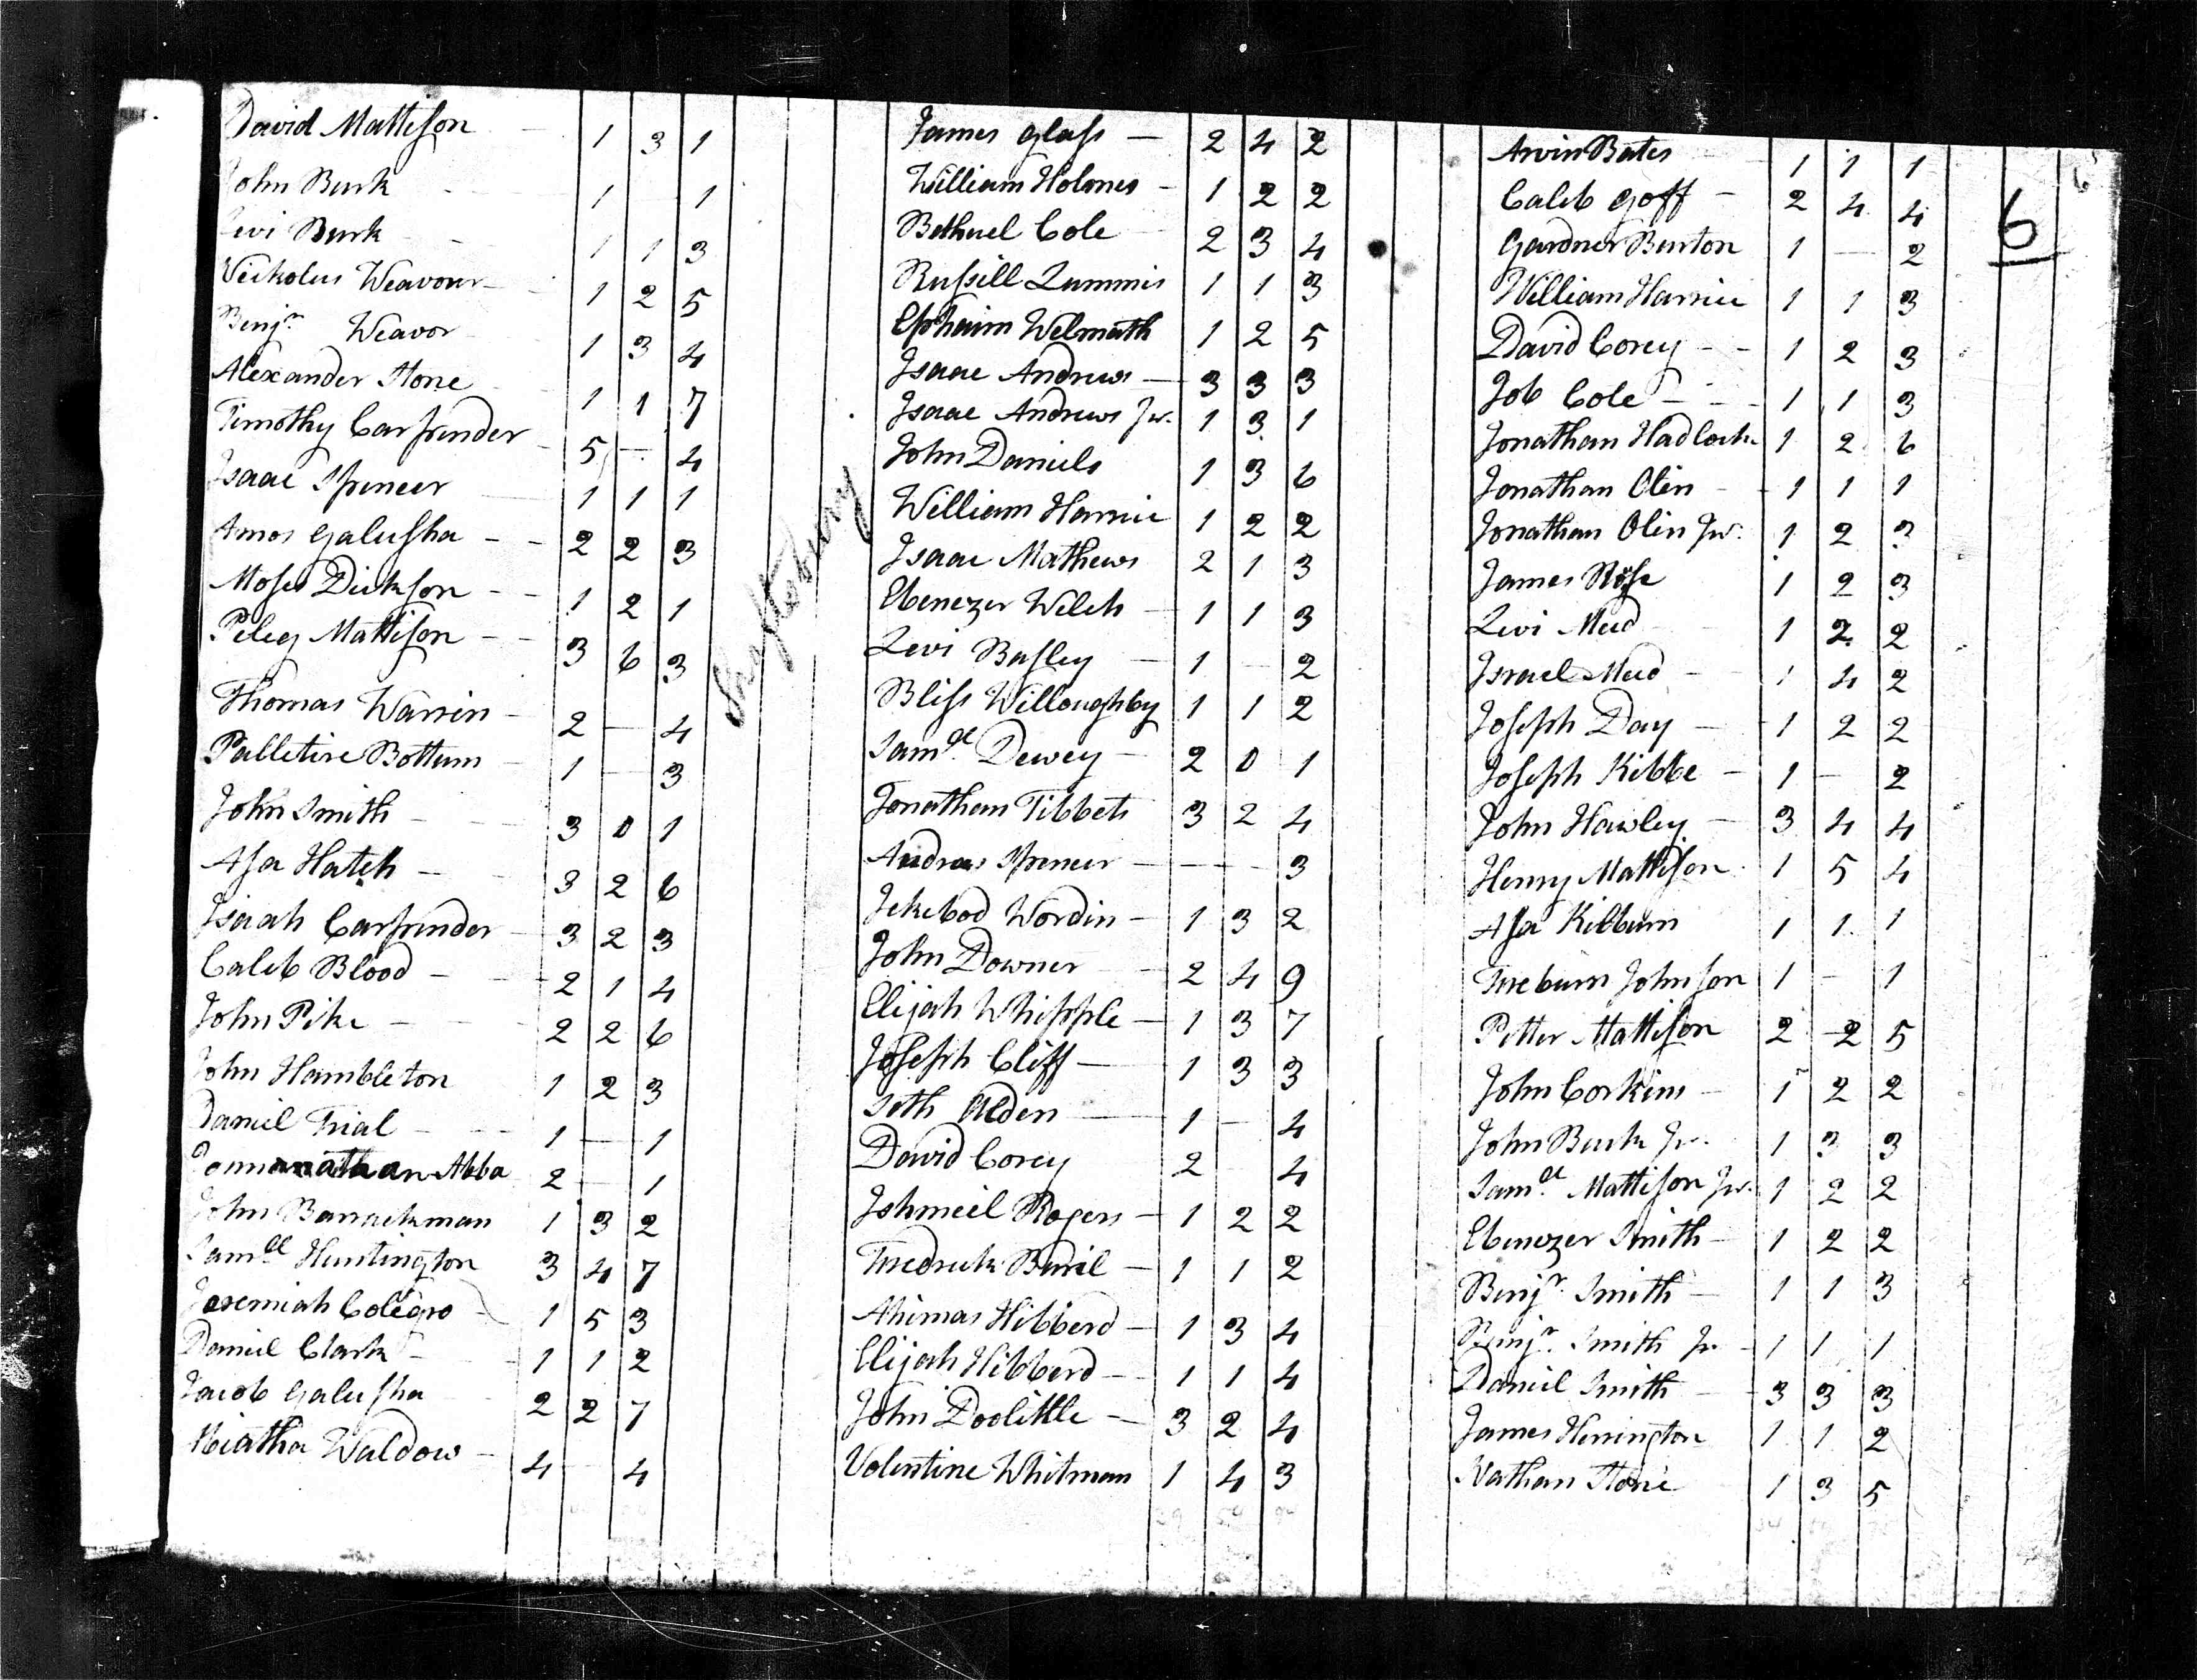 David Mattison 1 3 1
John Burk 1 1
Levi Burk 1 1 3
Nickolus Weavour 1 2 5
Benjn. Weavor 1 3 4
Alexander Stone 1 1 7
Timothy Carpender 5 — 4
Isaac Spencer 1 1 1
Amos Galusha 2 2 3
Moses Dickson 1 2 1
Peleg Mattison 3 6 3
Thomas Warrin 2 — 4
Palletire Bottum 1 — 3
John Smith 3 0 1
Asa Hatch 3 2 6
Isaiah Carpender 3 2 3
Caleb Blood 2 1 4
John Pike 2 2 6
John Hambleton 1 2 3
Daniel Trial 1 — 1
Abba 2 — 1
John Barrackman 1 3 2
Samll Huntington 3 4 7
Jeremiah Colegro 1 5 3
Daniel Clark 1 1 2
Jacob Galusha 2 2 7
Waldow 4 — 4
Shaftsbury
James Glass 2 4 2
William Holmes 1 2 2
Bethuel Cole 2 3 4
Russill Lummis 1 1 3
Ephraim Welmath 1 2 5
Isaac Andrews 3 3 3
Isaac Andrews Jur. 1 3 1
John Daniels 1 3 6
William Harris 1 2 2
Isaac Mathews 2 1 3
Ebenezer Welch 1 1 3
Levi Basley 1 — 2
Bliss Willoughby 1 1 2
Samll. Dewey 2 0 1
Jonathan Tibbets 3 2 4
Andras Spencer — — 3
Jekebod Wordin 1 3 2
John Downer 2 4 9
Elijah Whipple 1 3 7
Joseph Cliff 1 3 3
Seth Alden 1 — 4
David Corey 2 4
Ishmeil Rogers 1 2 2
Fredrick Buril 1 1 2
Ahimas Hibberd 1 3 4
Elijah Hibberd 1 1 4
John Doolittle 3 2 4
Volentine Whitman 1 4 3
Arvin Bates 1 1 1
Caleb Goff 2 4 4
Gardner Burton 1 — 2
William Harris 1 1 3
David Corey 1 2 3
Job Cole 1 1 3
Jonathan Hadlock 1 2 6
Jonathan Olin 1 1 1
Jonathan Olin Jur. 1 2 3
James Rose 1 2 3
Levi Mud 1 2 2
Israel Mud 1 4 2
Joseph Day 1 2 2
Joseph Kibbe 1 — 2
John Hawley 3 4 4
Henry Mattison 1 5 4
Asa Kilburn 1 1 1
Johnson 1 — 1
Petter Mattison 2 2 5
John Corkins 1 2 2
John Burk Jr. 1 3 3
Samll. Mattison Jur. 1 2 2
Ebenezer Smith 1 2 2
Benjn. Smith 1 1 3
Benjn. Smith Jr 1 1 1
Daniel Smith 3 3 3
James Herrington 1 1 2
Nathan Stone 1 3 5
6